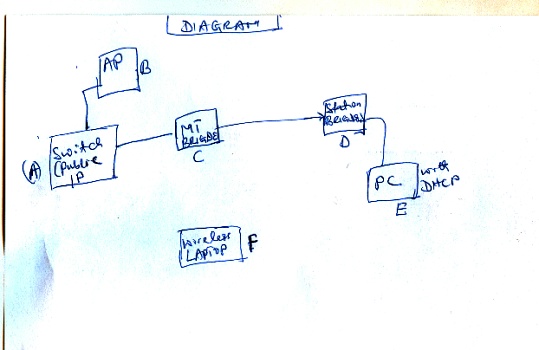 DIAGRAM
AP
B
(A)
Switch
(Public
IP
MT
BRIGADE
C
Station
D
PC
with
DHCP
E
wireless
LAPTOP
F